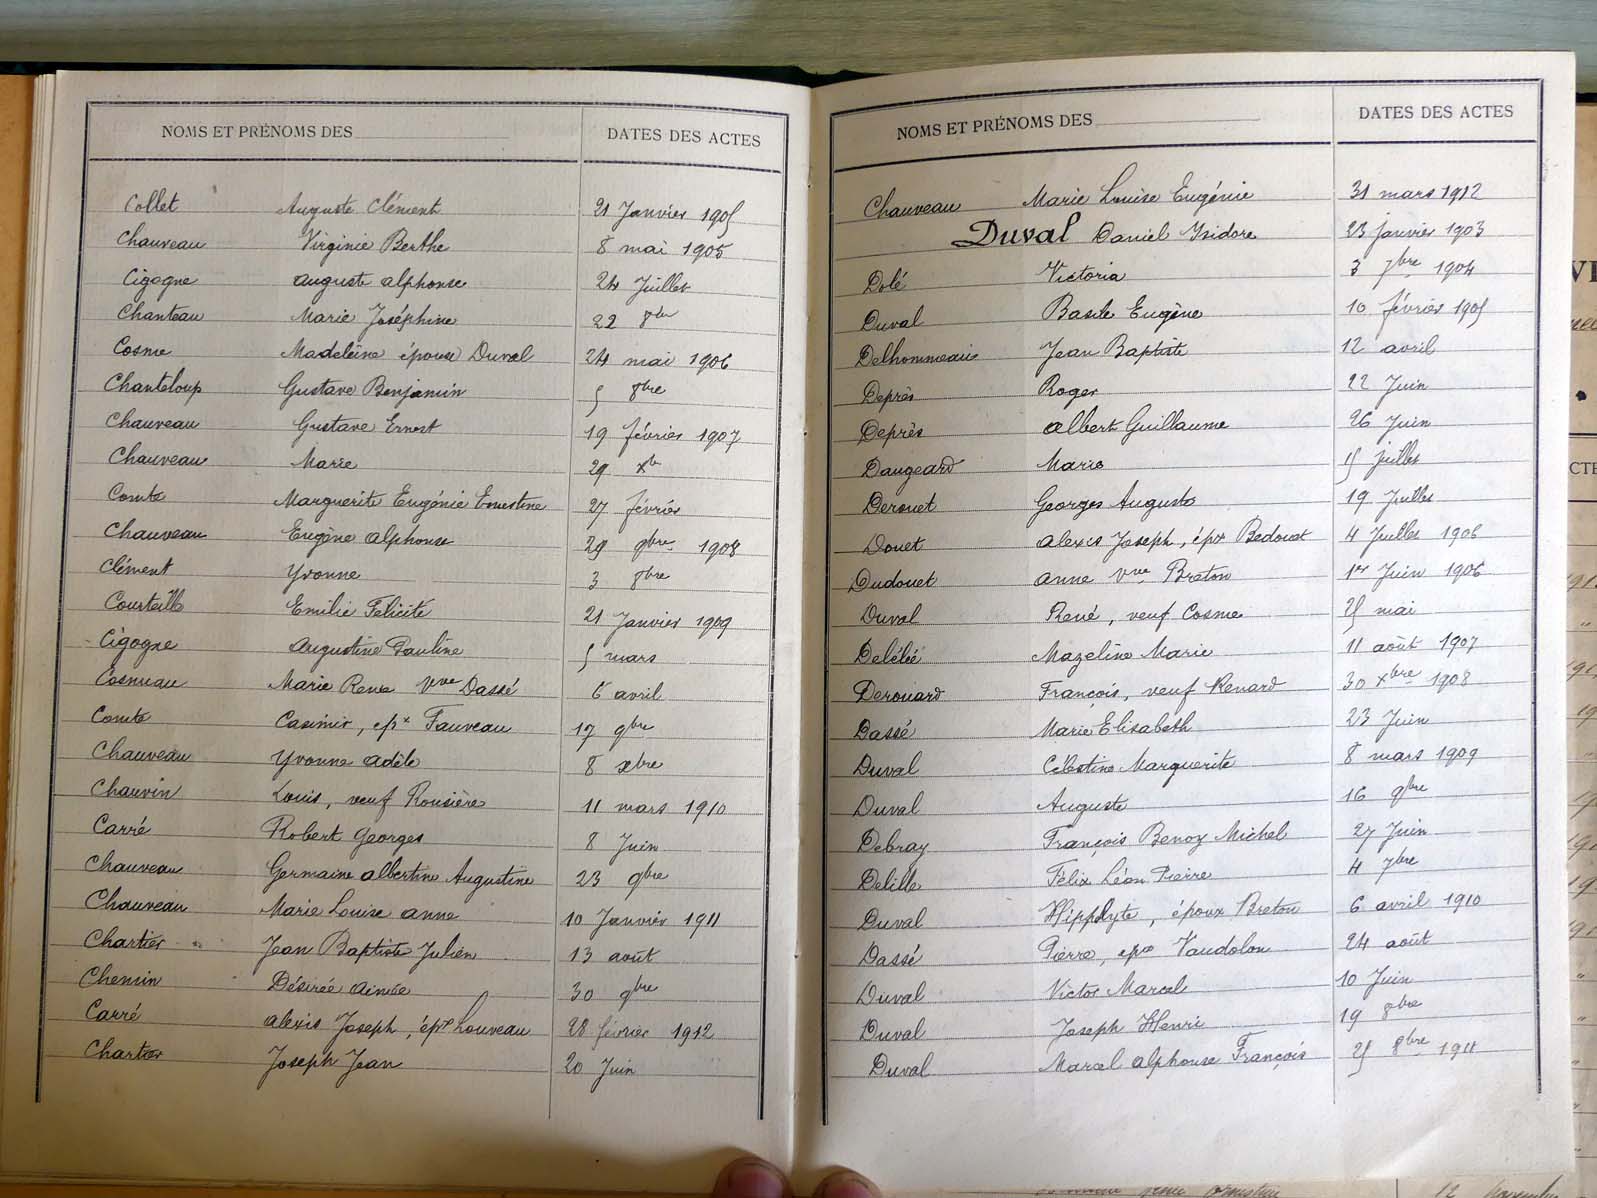 NOMS ET PRÉNOMS DES DATES DES ACTES
Collet Auguste Clément 21 Janvier 1905
Chauveau Virginie Berthe 8 mai 1905
Cigogne auguste alphonse 24 Juillet
Chanteau Marie Joséphine 22 8bre
Cosme Madeleine épouse Duval 24 mai 1906
Chanteloup Gustave Benjamin 5 8bre
Chauveau Gustave Ernest 19 février 1907
Chauveau Marie 29 xbre
Comte Marguerite Eugénie Ernestine 27 février
Chauveau Eugène alphonse 29 9bre 1908
Clément Yvonne 3 8bre
Courteille Emilie Félicité 21 Janvier 1909
Cigogne augustine Pauline 5 mars
Marie Rene vve Dassé 6 avril
Comte Casimir, epx Fauveau 17 9bre
Chauveau Yvonne adèle 8 xbre
Chauvin Louis, veuf Rousière 11 mars 1910
Carré Robert Georges 8 Juin
Chauveau Germaine albertine Augustine 23 9bre
Chauveau Marie Louise anne 10 Janvier 1911
Chartier Jean Baptiste Julien 13 août
Chemin Désirée aimée 30 9bre
Carré alexis Joseph, épx Louveau 28 février 1912
Chartier Joseph Jean 20 Juin
NOMS ET PRÉNOMS DES DATES DES ACTES
Chauveau Marie Louise Eugénie 31 mars 1912
Duval Daniel Isidore 23 janvier 1903
Dolé Victoria 3 7bre 1904
Duval Basile Eugène 10 février 1905
Delhommeau Jean Baptiste 12 avril
Deprès Roger 22 Juin
Deprès albert Guillaume 26 Juin
Daugeard Marie 15 juillet
Derouet Georges Auguste 19 Juillet
Douet alexis Joseph, épx Bedouet 4 Juillet 1906
Dudouet anne vve Breton 1er Juin 1906
Duval René, veuf Cosme 25 mai
Delélée Mazeline Marie 11 août 1907
Derouard François, veuf Renard 30 xbre 1908
Dassé Marie Elisabeth 23 Juin
Duval Célestine Marguerite 8 mars 1909
Duval Auguste 16 9bre
Debray François Benoz Michel 27 Juin
Delille Félix Léon Pierre 4 7bre
Duval Hippolyte, époux Breton 6 avril 1910
Dassé Pierre, epx Vaudolon 24 août
Duval Victor Marcel 10 Juin
Duval Joseph Henri 19 8bre
Duval Marcel alphonse François 25 8bre 1911